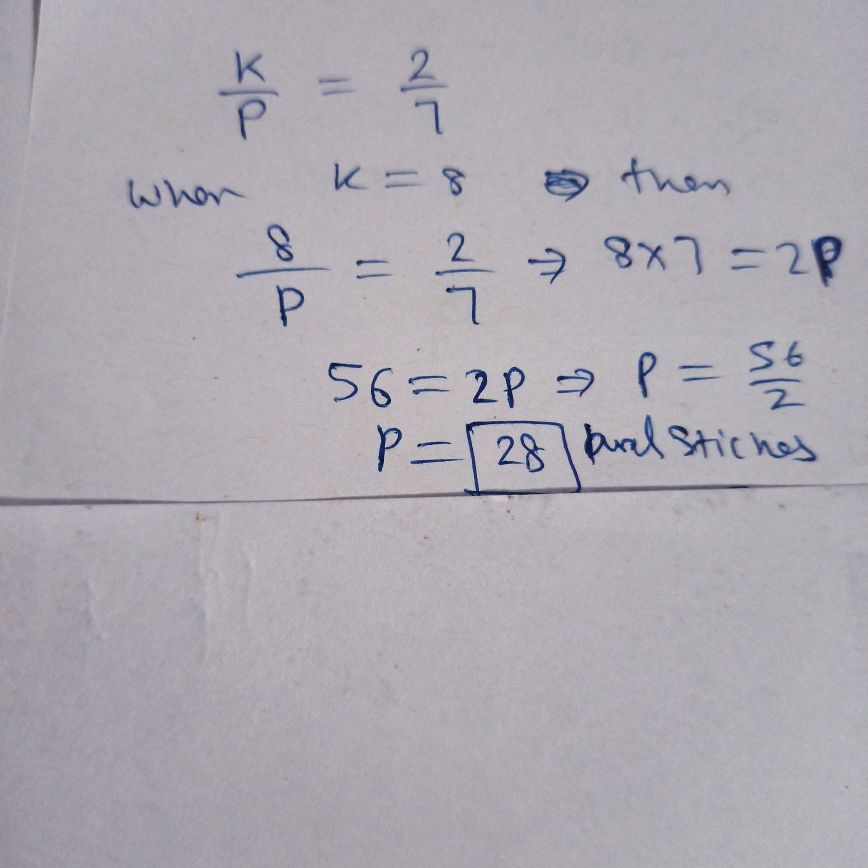 K/P = 2/7
when K = 8 then
8/P = 2/7 ⇒ 8×7 = 2P
56 = 2P ⇒ P = 56/2
P = 28 purl stiches